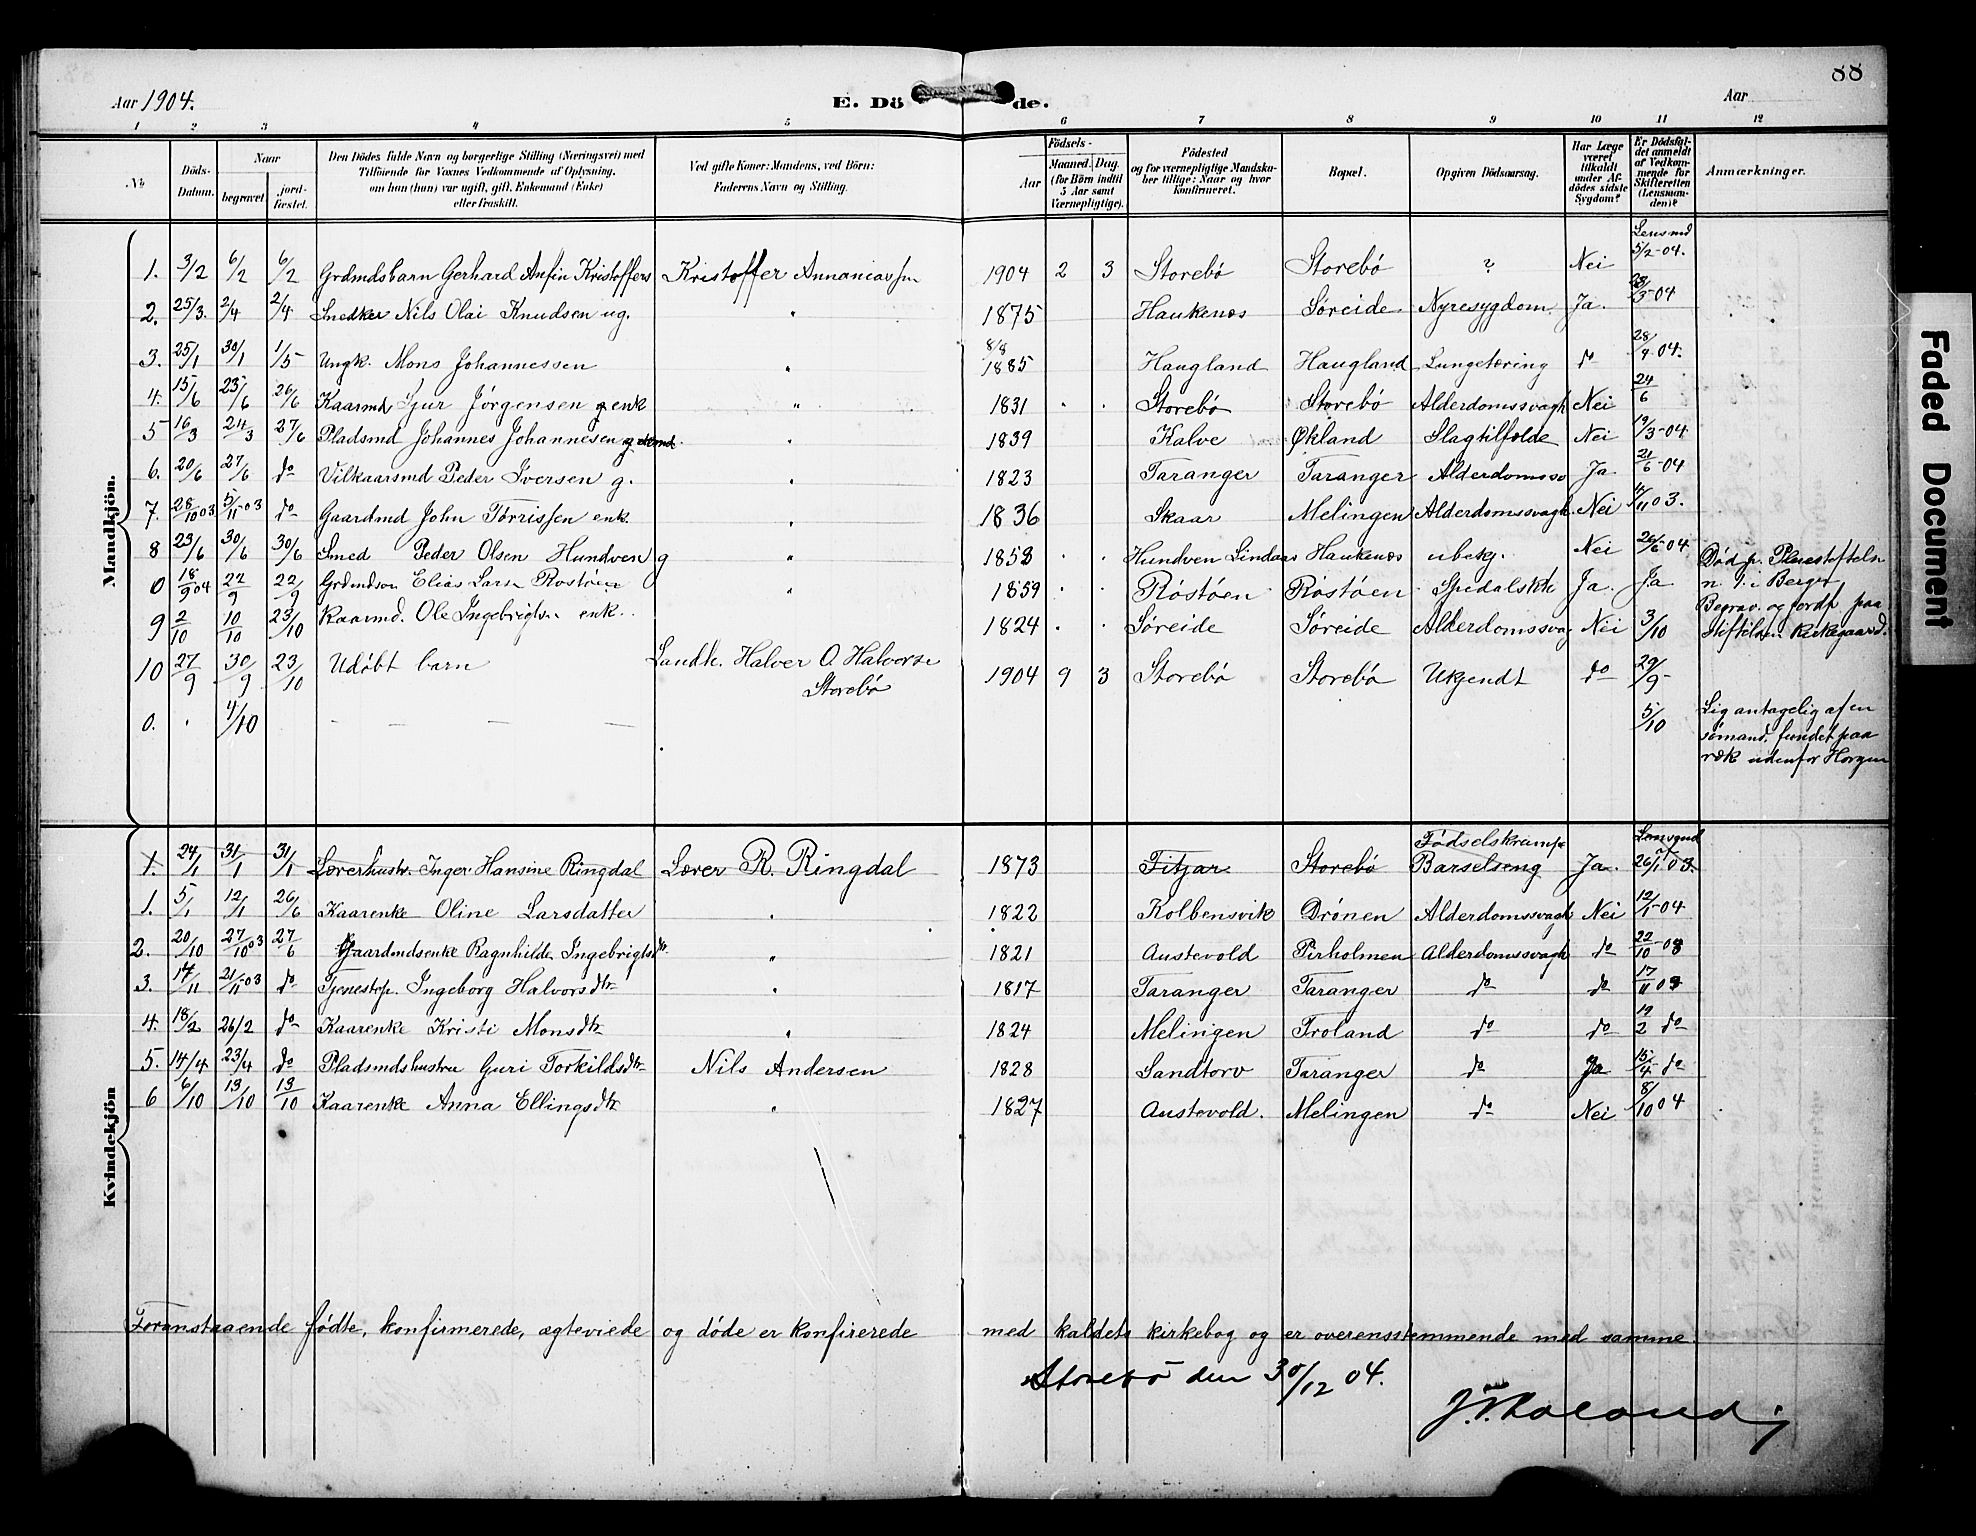 88
Aar 1904. E. Dö de. Aar
1 2 3 4 5 6 7 8 9 10 11 12
No Döds-Datum. Naar begravet jord-fæstet. Den Dödes fulde Navn og borgerlige Stilling (Næringsvei) med Tilföiende for Voxnes Vedkommende af Oplysning, om han (hun) var ugift, gift, Enkemand (Enke) eller fraskilt. Ved gifte Koner: Mandens, ved Börn: Faderens Navn og Stilling. Födsels- Aar Maaned. Dag. (for Börn indtil 5 Aar samt Værnepligtige). Födested og for værnepligtige Mandskaber tillige: Naar og hvor Konfirmeret. Bopæl. Opgiven Dödsaarsag. Har Læge været tilkaldt under Afdödes sidste Sygdom? Er Dödsfaldet anmeldt af Vedkommende for Skifteretten (Lensmanden)? Anmærkninger.
Mandkjön.
1. 3/2 6/2 6/2 Grdmdsbarn Gerhard Anfin Kristoffers Kristoffer Annaniassen 1904 2 3 Storebø Storebø ? Nei Lensmd 5/2-04.
2. 25/3. 2/4 2/4 Snedker Nils Olai Knudsen ug. " 1875 Haukenæs Søreide Nyresygdom. Ja. 04
3. 25/1 30/1 1/5 Ungk. Mons Johannessen " 8/8 1885 Haugland Haugland Lungetæring do 28/4 04.
4. 15/6 23/6 26/6 Kaarmd Sjur Jørgensen enk " 1831 Storebø Storebø Alderdomssvagh Nei 24/6
5 16/3 24/3 27/6 Pladsmd Johannes Johannesen " 1839 Kalve Økland Slagtilfælde Nei 19/3-04
6. 20/6 27/6 do Vilkaarsmd Peder Iversen g. " 1823 Taranger Taranger Alderdomssv Ja 21/6-04
7. 28/10 03 5/11-03 do Gaardmd John Tørrissen enk. " 1836 Skaar Melingen Alderdomssvagh. Nei 4/11 03.
8 23/6 30/6 30/6 Smed Peder Olsen Hundven g " 1858 Hundven Lindaas Haukenæs ubekj. Nei 26/6-04
0 18/9 04 22/9 22/9 Grdmdson Elias Larsn Rostøen " 1859 Røstøen Røstøen Spedalskh Ja. Ja Død p. Pleiestiftelsn n. 1 i Bergen Begrav. og jordf paa Stiftelsn Kirkegaard.
9 2/10 10/10 23/10 Kaarmd. Ole Ingebrigtsn enk. 1824 Søreide Søreide Alderdomssvag Nei 3/10
10 27/9 30/9 23/10 Udøbt barn Landh. Halver O. Halvorsn Storebø 1904 9 3 Storebø Storebø Ukjendt do 29/9
0. 4/10 5/10 Lig antagelig af en
sømand, fundet paa
ræk udenfor Horgen
Kvindekjön
1. 24/1 31/1 31/1 Lærerhustr. Inger Hansine Ringdal Lærer R. Ringdal 1873 Fitjar Storebø Fødselskrampe Barselseng Ja. 26/1 03.
1. 5/1 12/1 26/6 Kaarenke Oline Larsdatter 1822 Kolbensvik Drönen Alderdomssvagh Nei 12/1-04
2. 20/10 27/10 03 27/6 Gaardmdsenke Ragnhilde Ingebrigtsdtr. " 1821 Austevold Pirholmen Alderdomssvagh do 22/10-03
3. 17/11 21/11-03 do Tjenestep. Ingeborg Halvorsdtr " 1817 Taranger Taranger do do 17/11 03
4. 18/2 26/2 do Kaarenke Kristi Monsdtr " 1824 Melingen Troland do do 19/2 do
5. 14/4 23/4 do Pladsmdshustru Guri Torkildsdtr Nils Andersen 1828 Sandtorv Taranger do Ja 15/4 do
6 6/10 13/10 13/10 Kaarenke Anna Ellingsdtr " 1827 Austevold. Melingen do Nei 8/10 04
Foranstaaende fødte, konfirmerede, ægteviede og døde er konfirerede med kaldets kirkebog og er overensstemmende med samme.
Storebø den 30/12 04.
Faded Document